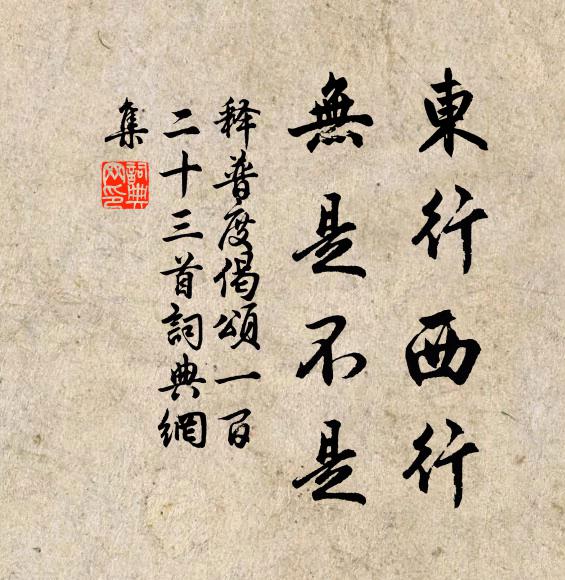 東行西行
無是不是
释普度偈頌一百
二十三首詞典網
集
詞典網印